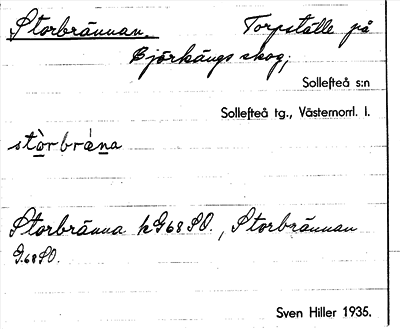 Storbrännan. Torpställe på
Björkängs skog;
Sollefteå s:n
Sollefteå tg., Västernorrl. l.
stòrbrà̱ṉa
Storbränna kG68SO., Storbrännan
G.68SO.
Sven Hiller 1935.